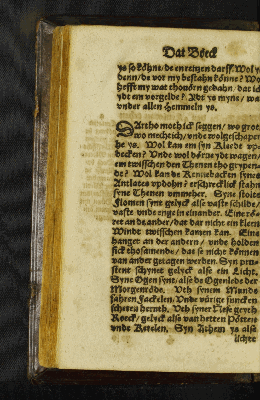 Dat Boeck
ys so köhne/de en reitzen darff. Wol ys
denn/de vor my bestahn könne? Wol
hefft my wat thovörn gedahn/dat ick
ydt em vorgelde? Ydt ys myne/wat
vnder allen Hemmeln ys.
DArtho moth ick seggen/wo grot/
wo mechtich/vnde wolgeschapen
he ys. Wol kan em syn Kledt vp-
decken? Vnde wol dörne ydt wagen/
em twisschen den Thenen tho grypen-
de? Wol kan de Kennebacken synes
Antlates vpdohn? erschrecklick stahn
syne Thenen vmmeher. Syne stolte
Flomen synt gelyck alse vaste schilde/
vaste vnde enge in einander. Eine rö-
ret an de ander/dat dar nicht ein klein
Windt twisschen kamen kan. Eine
hanget an der andern/vnde holden
sick thosamende/dat se nicht können
van ander getagen werden. Syn pru-
stent schynet gelyck alse ein Licht.
Syne Ogen synt/alse de Ogenlede der
Morgenröde. Vth synem Munde
fahren Fackelen. Vnde vürige funcken
scheten heruth. Vth syner Nese geyth
Roeck/gelyck alse van hetten Pötten
vnde Ketelen. Syn Athem ys alse
lichte